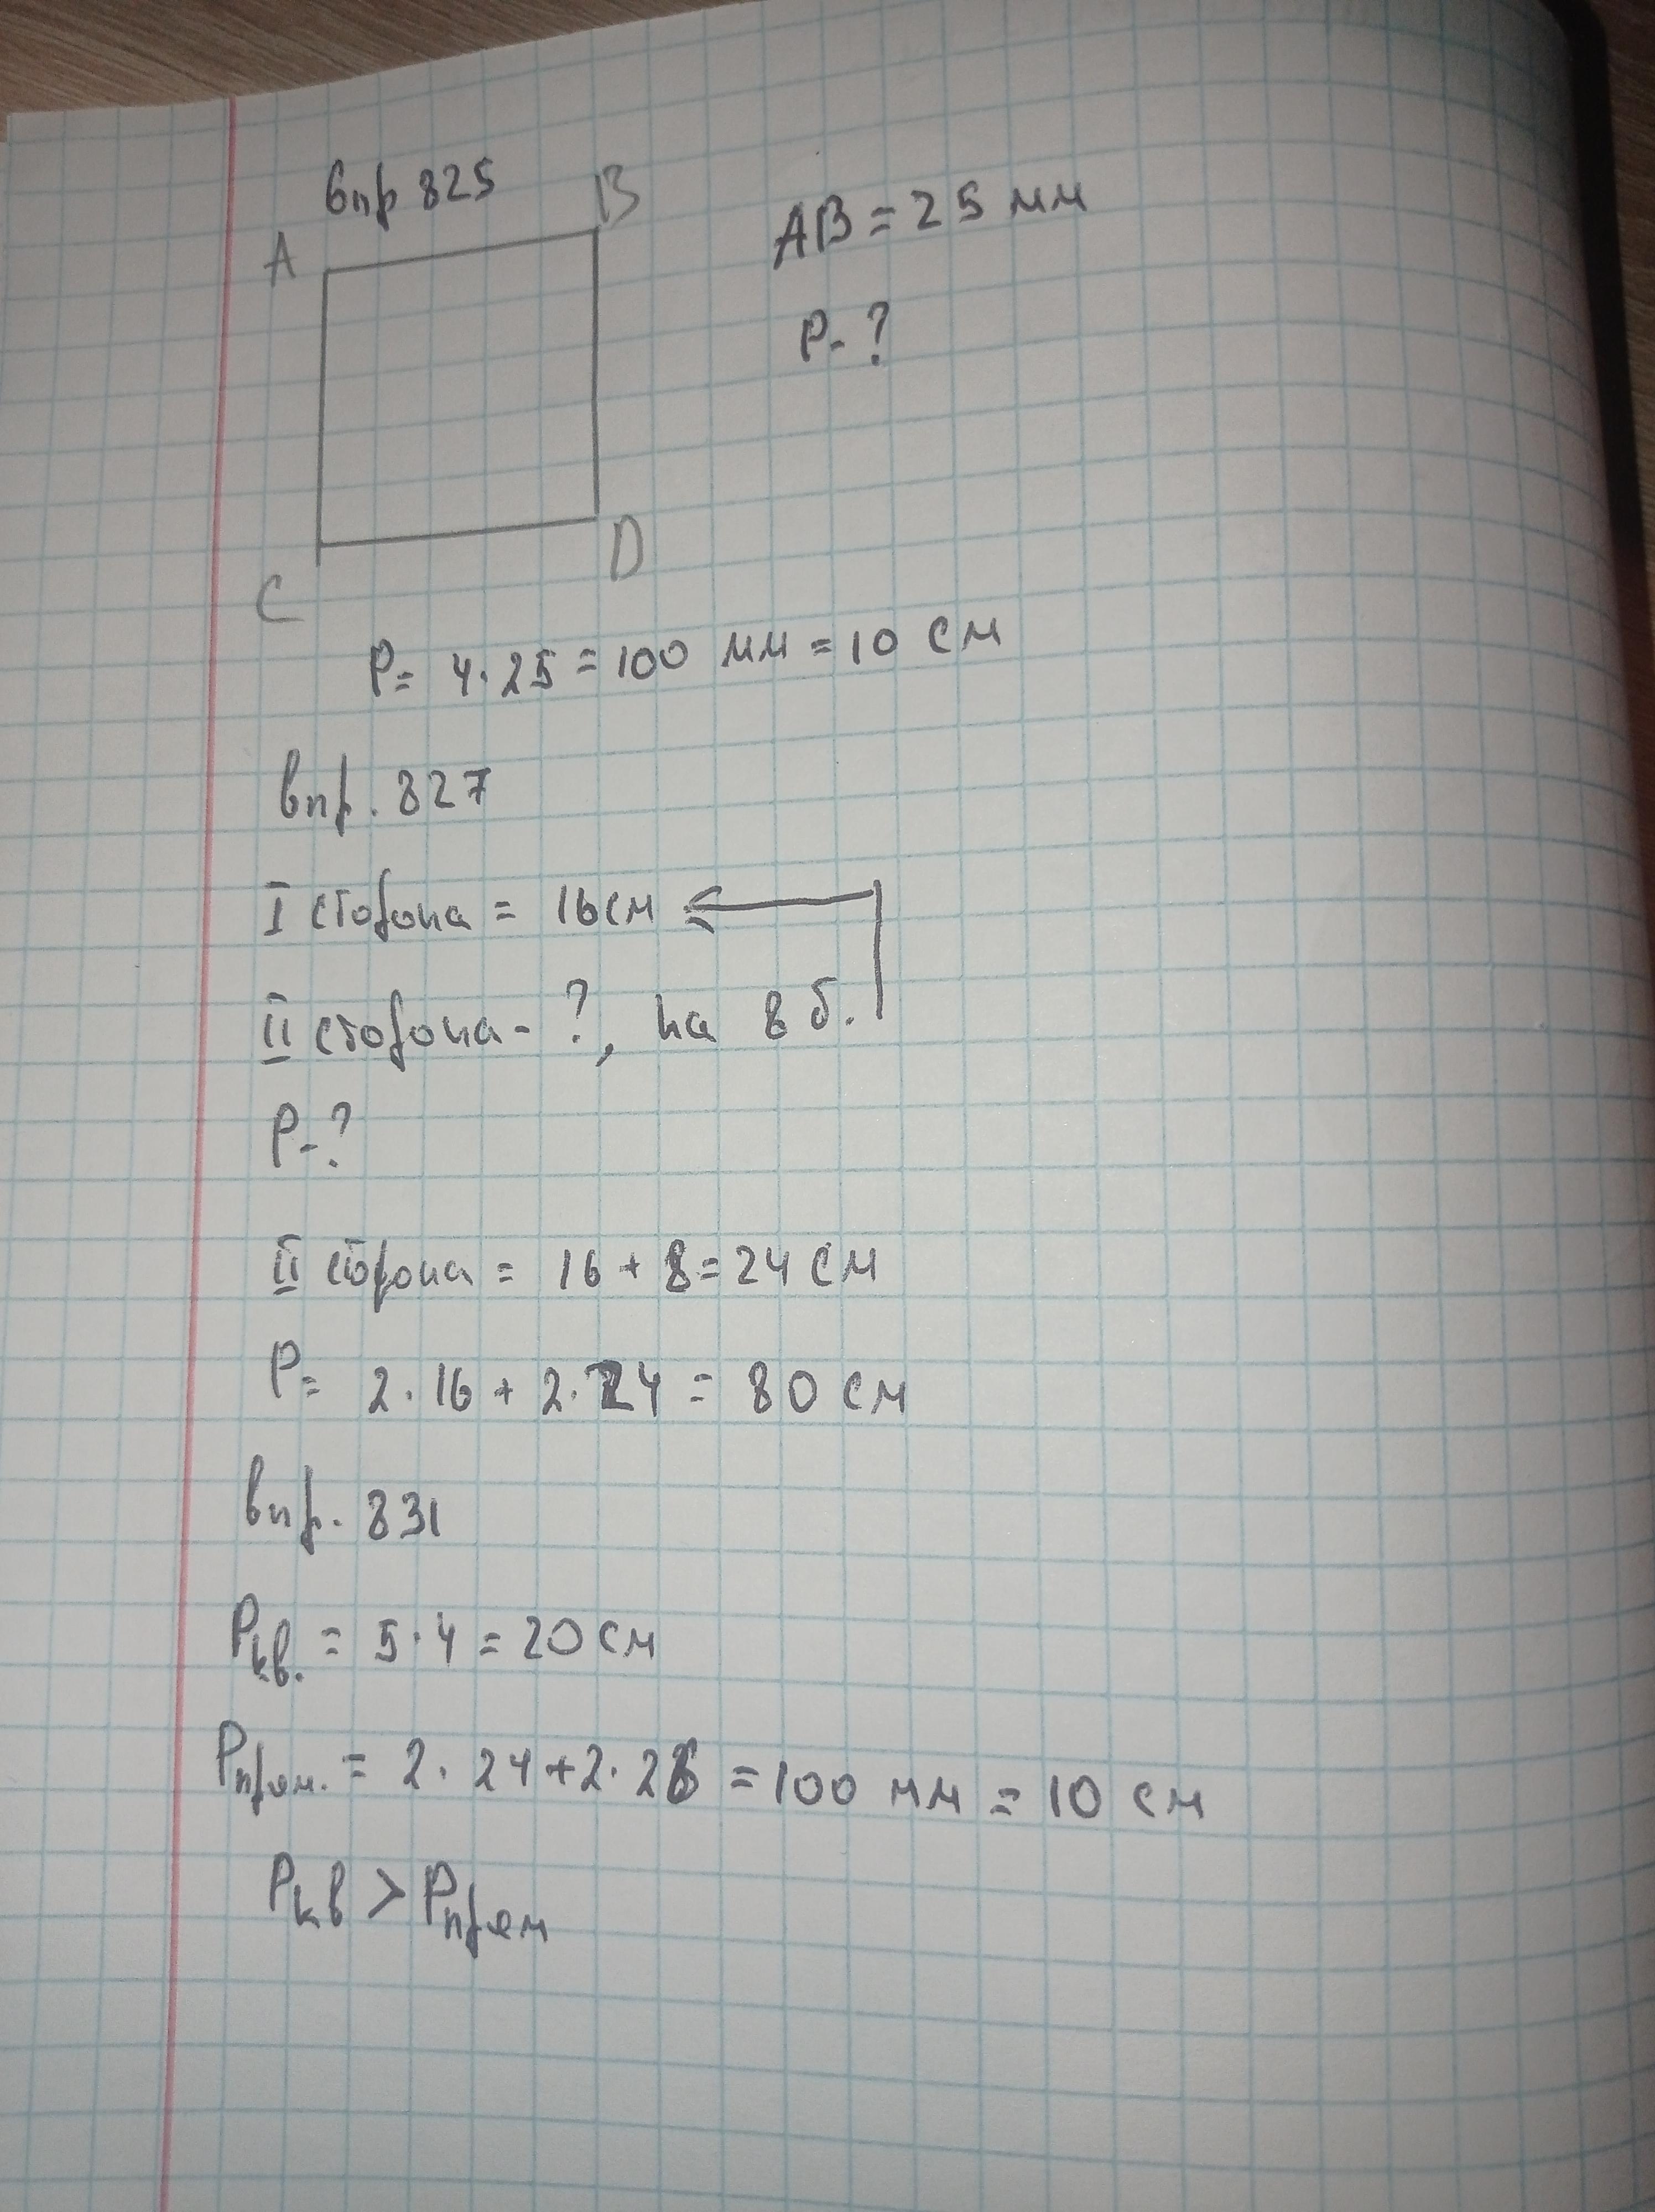 впр 825
A B
AB = 25 мм
P - ?
C D
P = 4 · 25 = 100 мм = 10 см
впр. 827
I сторона = 16 см
II сторона - ?, на 8 б.
P - ?
II сторона = 16 + 8 = 24 см
P = 2 · 16 + 2 · 24 = 80 см
впр. 831
Pкв. = 5 · 4 = 20 см
Pпрям. = 2 · 24 + 2 · 26 = 100 мм = 10 см
Pкв > Pпрям